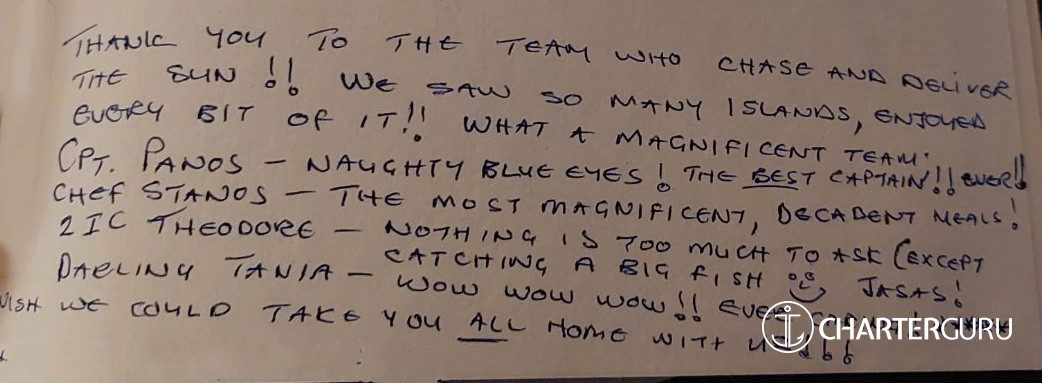 THANK YOU TO THE TEAM WHO CHASE AND DELIVER
THE SUN!! WE SAW SO MANY ISLANDS, ENJOYED
EVERY BIT OF IT!! WHAT A MAGNIFICENT TEAM.
CPT. PANOS - NAUGHTY BLUE EYES! THE BEST CAPTAIN!! EVER!!
CHEF STANOS - THE MOST MAGNIFICENT, DECADENT MEALS!
2IC THEODORE - NOTHING IS TOO MUCH TO ASK (EXCEPT
CATCHING A BIG FISH JASAS!
DARLING TANIA - WOW WOW WOW!!
WISH WE COULD TAKE YOU ALL HOME WITH
CHARTERGURU